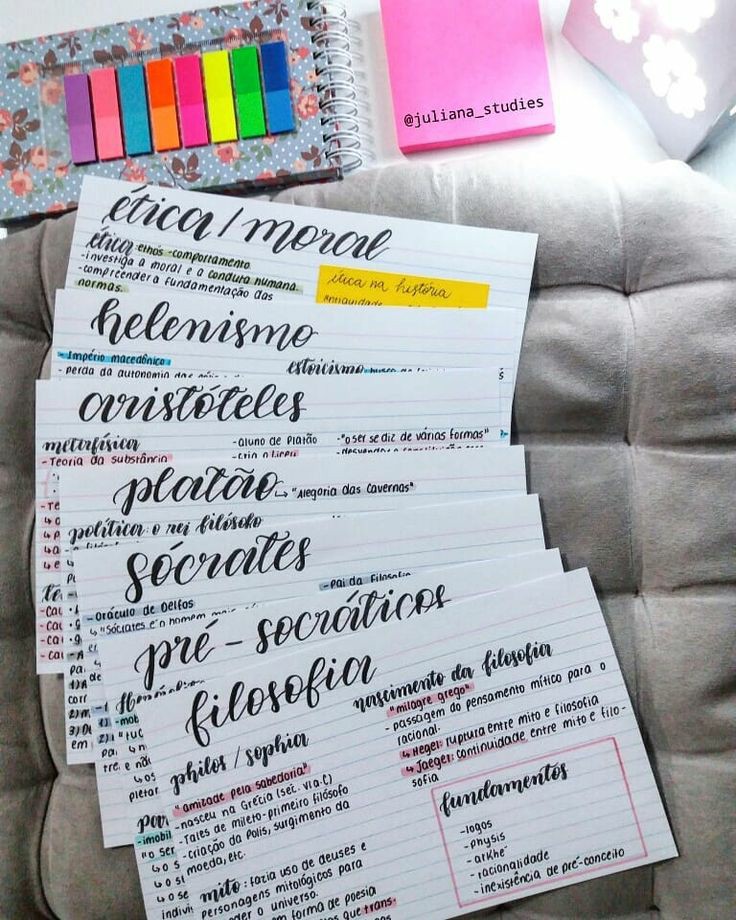 @juliana_studies
ética / moral
ética: ethos - comportamento
- investiga a moral e a conduta humana.
- compreender a fundamentação das
normas.
ética na história
antiguidade
helenismo
- Império macedônico
- perda da autonomia das
estoicismo
aristóteles
metafísica
- Teoria da substância
- aluno de Platão
- cria o Liceu
- "o ser se diz de várias formas"
platão
↳ "Alegoria das Cavernas"
política: o rei filósofo
sócrates
- Oráculo de Delfos
↳ "Sócrates é o homem mais
- Pai da Filosofia
pré - socráticos
filosofia
philos / sophia
"amizade pela sabedoria"
- nasceu na Grécia (séc. VI a.C)
- Tales de Mileto - primeiro filósofo
- criação da Polis, surgimento da
moeda, etc.
mito: fazia uso de deuses e
personagens mitológicos para
o universo.
em forma de poesia
que trans-
nascimento da filosofia
"milagre grego"
- passagem do pensamento mítico para o
racional.
↳ Hegel: ruptura entre mito e filosofia
↳ Jaeger: continuidade entre mito e filo-
sofia
fundamentos
- logos
- physis
- arkhé
- racionalidade
- inexistência de pré-conceito